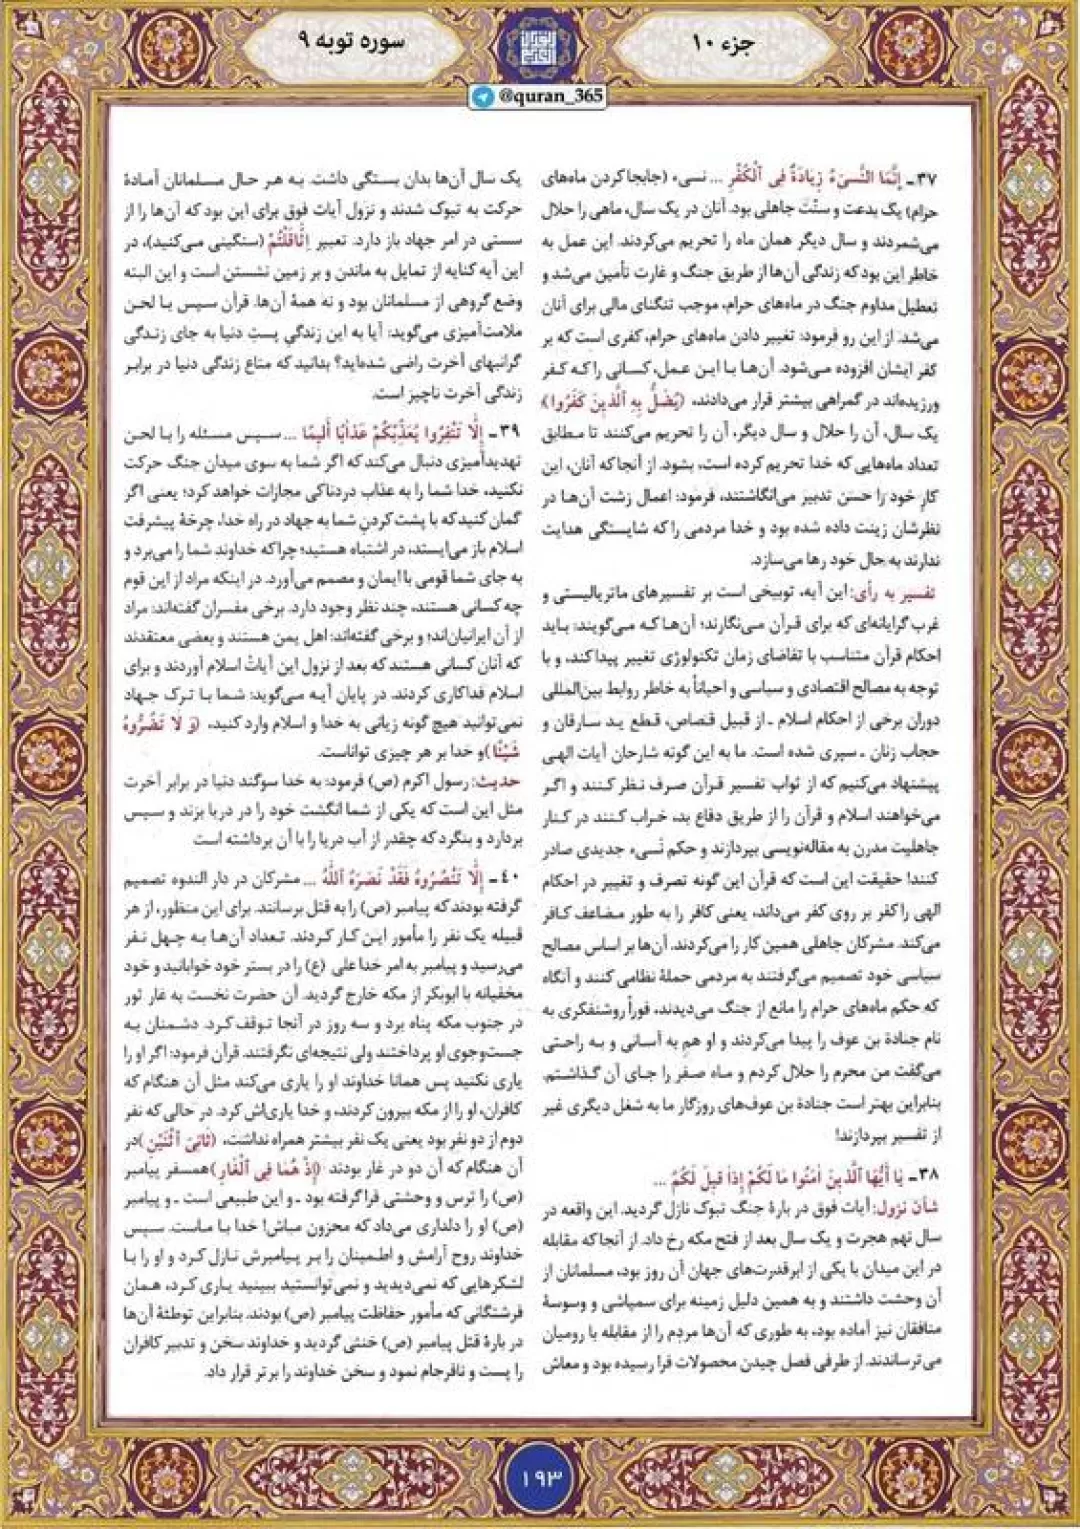 جزء ۱۰
سوره توبه ۹
@quran_365
۳۷ـ إِنَّمَا النَّسِیءُ زِیَادَةٌ فِی ٱلْکُفْرِ ... نسیء (جابجا کردن ماه‌های
حرام) یک بدعت و سنّت جاهلی بود. آنان در یک سال، ماهی را حلال
می‌شمردند و سال دیگر همان ماه را تحریم می‌کردند. این عمل به
خاطر این بود که زندگی آن‌ها از طریق جنگ و غارت تأمین می‌شد و
تعطیل مداوم جنگ در ماه‌های حرام، موجب تنگنای مالی برای آنان
می‌شد. از این رو فرمود: تغییر دادن ماه‌های حرام، کفری است که بر
کفر ایشان افزوده می‌شود. آن‌ها با این عمل، کسانی را که کفر
ورزیده‌اند در گمراهی بیشتر قرار می‌دادند، (یُضَلُّ بِهِ ٱلَّذِینَ کَفَرُوا)
یک سال، آن را حلال و سال دیگر، آن را تحریم می‌کنند تا مطابق
تعداد ماه‌هایی که خدا تحریم کرده است، بشود. از آنجا که آنان، این
کارِ خود را حسن تدبیر می‌انگاشتند، فرمود: اعمال زشت آن‌ها در
نظرشان زینت داده شده بود و خدا مردمی را که شایستگی هدایت
ندارند به حال خود رها می‌سازد.
تفسیر به رأی: این آیه، توبیخی است بر تفسیرهای ماتریالیستی و
غرب گرایانه‌ای که برای قرآن می‌نگارند؛ آن‌ها که می‌گویند: باید
احکام قرآن متناسب با تقاضای زمان تکنولوژی تغییر پیدا کند، و با
توجه به مصالح اقتصادی و سیاسی و احیاناً به خاطر روابط بین‌المللی
دوران برخی از احکام اسلام ـ از قبیل قصاص، قطع ید سارقان و
حجاب زنان ـ سپری شده است. ما به این گونه شارحان آیات الهی
پیشنهاد می‌کنیم که از ثواب تفسیر قرآن صرف نظر کنند و اگر
می‌خواهند اسلام و قرآن را از طریق دفاع بد، خراب کنند در کنار
جاهلیت مدرن به مقاله‌نویسی بپردازند و حکم نَسیء جدیدی صادر
کنند! حقیقت این است که قرآن این گونه تصرف و تغییر در احکام
الهی را کفر بر روی کفر می‌داند، یعنی کافر را به طور مضاعف کافر
می‌کند. مشرکان جاهلی همین کار را می‌کردند. آن‌ها بر اساس مصالح
سیاسی خود تصمیم می‌گرفتند به مردمی حملهٔ نظامی کنند و آنگاه
که حکم ماه‌های حرام را مانع از جنگ می‌دیدند، فوراً روشنفکری به
نام جنادة بن عوف را پیدا می‌کردند و او هم به آسانی و به راحتی
می‌گفت من محرم را حلال کردم و ماه صفر را جای آن گذاشتم.
بنابراین بهتر است جنادة بن عوف‌های روزگار ما به شغل دیگری غیر
از تفسیر بپردازند!
۳۸ـ یَا أَیُّهَا ٱلَّذِینَ آمَنُوا مَا لَکُمْ إِذَا قِیلَ لَکُمْ ...
شأن نزول: آیات فوق در بارهٔ جنگ تبوک نازل گردید. این واقعه در
سال نهم هجرت و یک سال بعد از فتح مکه رخ داد. از آنجا که مقابله
در این میدان با یکی از ابرقدرت‌های جهان آن روز بود، مسلمانان از
آن وحشت داشتند و به همین دلیل زمینه برای سمپاشی و وسوسهٔ
منافقان نیز آماده بود، به طوری که آن‌ها مردم را از مقابله با رومیان
می‌ترساندند. از طرفی فصل چیدن محصولات فرا رسیده بود و معاش
یک سال آن‌ها بدان بستگی داشت. به هر حال مسلمانان آمادهٔ
حرکت به تبوک شدند و نزول آیات فوق برای این بود که آن‌ها را از
سستی در امر جهاد باز دارد. تعبیر اِثَّاقَلْتُمْ (سنگینی می‌کنید)، در
این آیه کنایه از تمایل به ماندن و بر زمین نشستن است و این البته
وضع گروهی از مسلمانان بود و نه همهٔ آن‌ها. قرآن سپس با لحن
ملامت‌آمیزی می‌گوید: آیا به این زندگیِ پستِ دنیا به جای زندگی
گرانبهای آخرت راضی شده‌اید؟ بدانید که متاع زندگی دنیا در برابر
زندگی آخرت ناچیز است.
۳۹ـ إِلَّا تَنْفِرُوا یُعَذِّبْکُمْ عَذَابًا أَلِیمًا ... سپس مسئله را با لحن
تهدیدآمیزی دنبال می‌کند که اگر شما به سوی میدان جنگ حرکت
نکنید، خدا شما را به عذاب دردناکی مجازات خواهد کرد؛ یعنی اگر
گمان کنید که با پشت کردنِ شما به جهاد در راه خدا، چرخهٔ پیشرفت
اسلام باز می‌ایستد، در اشتباه هستید؛ چرا که خداوند شما را می‌برد و
به جای شما قومی با ایمان و مصمم می‌آورد. در اینکه مراد از این قوم
چه کسانی هستند، چند نظر وجود دارد. برخی مفسران گفته‌اند: مراد
از آن ایرانیان‌اند؛ و برخی گفته‌اند: اهل یمن هستند و بعضی معتقدند
که آنان کسانی هستند که بعد از نزول این آیات اسلام آوردند و برای
اسلام فداکاری کردند. در پایان آیه می‌گوید: شما با ترک جهاد
نمی‌توانید هیچ گونه زیانی به خدا و اسلام وارد کنید، (وَ لَا تَضُرُّوهُ
شَیْئًا) و خدا بر هر چیزی تواناست.
حدیث: رسول اکرم (ص) فرمود: به خدا سوگند دنیا در برابر آخرت
مثل این است که یکی از شما انگشت خود را در دریا بزند و سپس
بردارد و بنگرد که چقدر از آب دریا را با آن برداشته است
۴۰ـ إِلَّا تَنْصُرُوهُ فَقَدْ نَصَرَهُ ٱللَّهُ ... مشرکان در دار الندوه تصمیم
گرفته بودند که پیامبر (ص) را به قتل برسانند. برای این منظور، از هر
قبیله یک نفر را مأمور این کار کردند. تعداد آن‌ها به چهل نفر
می‌رسید و پیامبر به امر خدا علی (ع) را در بستر خود خوابانید و خود
مخفیانه با ابوبکر از مکه خارج گردید. آن حضرت نخست به غار ثور
در جنوب مکه پناه برد و سه روز در آنجا توقف کرد. دشمنان به
جست‌وجوی او پرداختند ولی نتیجه‌ای نگرفتند. قرآن فرمود: اگر او را
یاری نکنید پس همانا خداوند او را یاری می‌کند مثل آن هنگام که
کافران، او را از مکه بیرون کردند، و خدا یاری‌اش کرد. در حالی که نفر
دوم از دو نفر بود یعنی یک نفر بیشتر همراه نداشت، (ثَانِیَ ٱثْنَیْنِ) در
آن هنگام که آن دو در غار بودند (إِذْ هُمَا فِی ٱلْغَارِ) همسفر پیامبر
(ص) را ترس و وحشتی فرا گرفته بود ـ و این طبیعی است ـ و پیامبر
(ص) او را دلداری می‌داد که محزون مباش! خدا با ماست. سپس
خداوند روح آرامش و اطمینان را بر پیامبرش نازل کرد و او را با
لشکرهایی که نمی‌دیدید و نمی‌توانستید ببینید یاری کرد، همان
فرشتگانی که مأمور حفاظت پیامبر (ص) بودند. بنابراین توطئهٔ آن‌ها
در بارهٔ قتل پیامبر (ص) خنثی گردید و خداوند سخن و تدبیر کافران
را پست و نافرجام نمود و سخن خداوند را برتر قرار داد.
۱۹۳